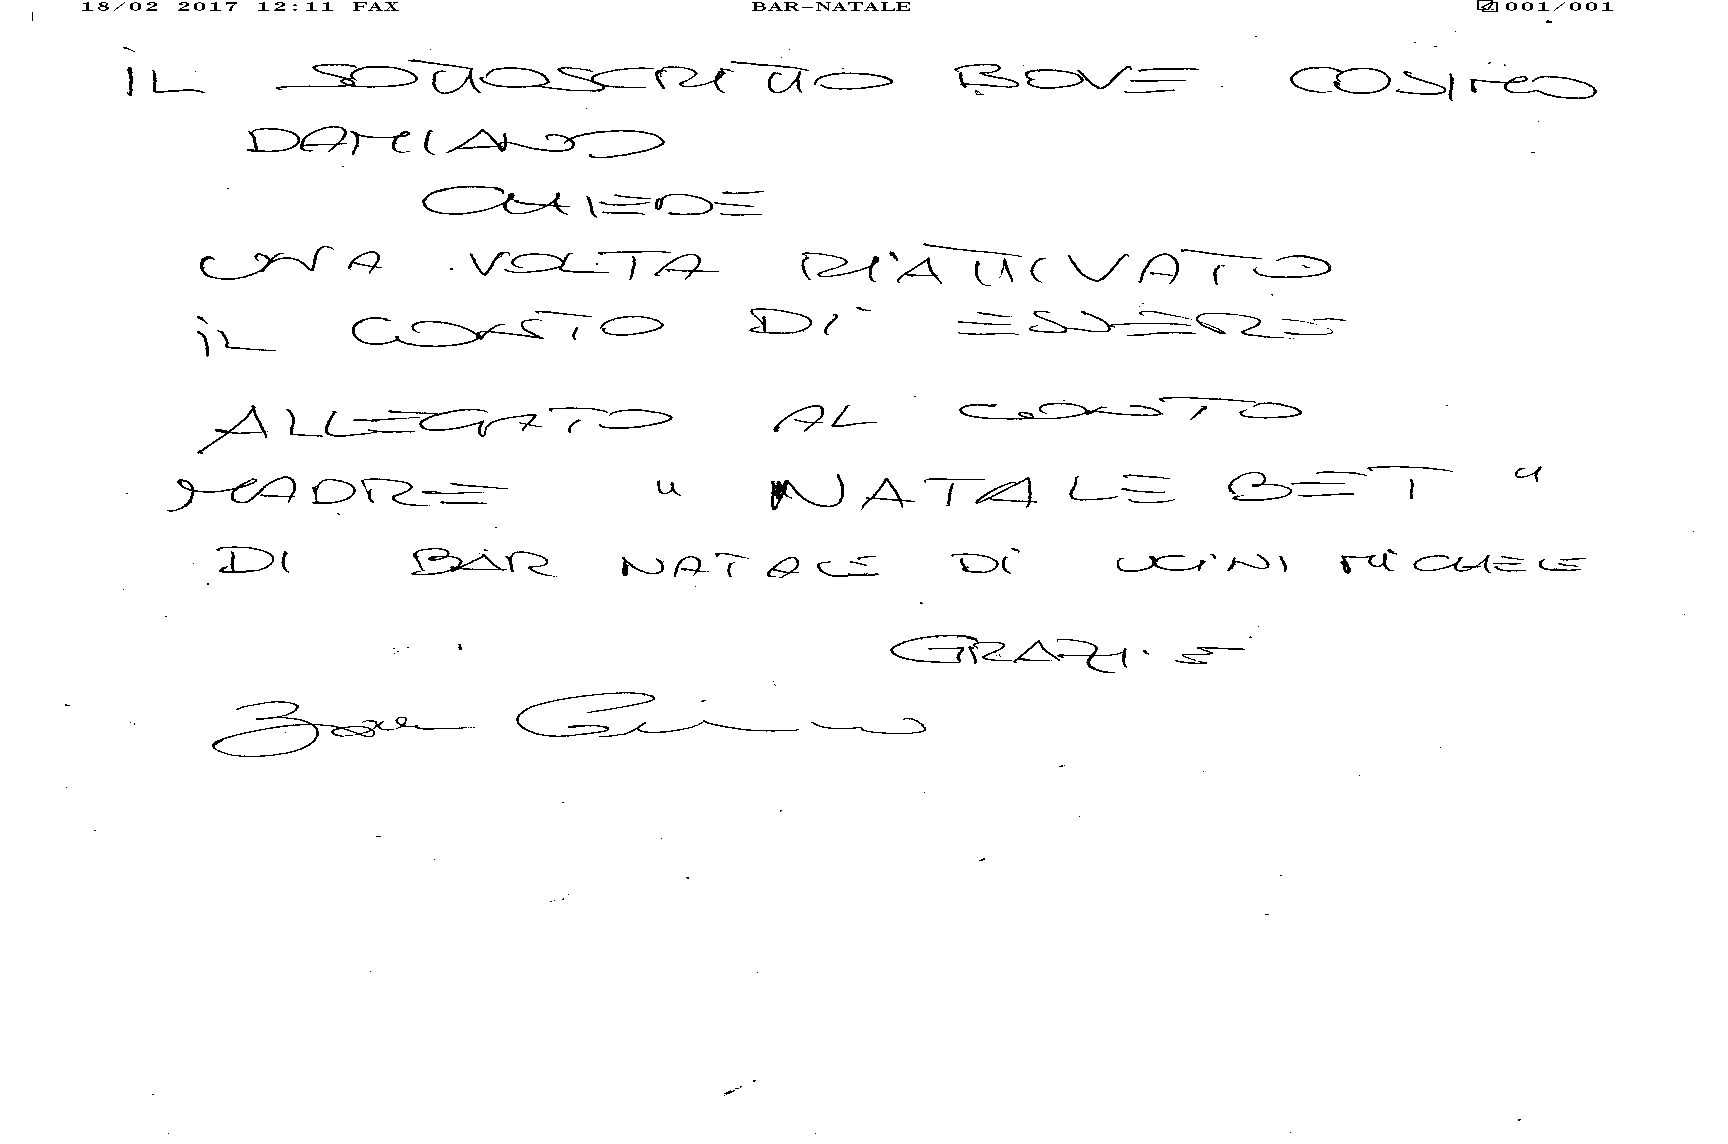 18/02 2017 12:11 FAX BAR-NATALE 001/001
IL SOTTOSCRITTO BOVE COSIMO
DAMIANO
CHIEDE
UNA VOLTA RIATTIVATO
IL CONTO DI ESSERE
ALLEGATO AL CONTO
MADRE " NATALE BET "
DI BAR NATALE DI UGINI MICHELE
GRAZIE
Bove Cosimo